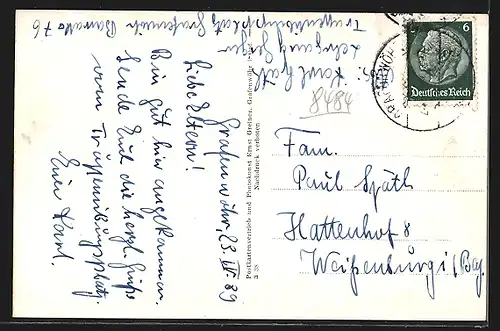 Grafenwöhr, 23. IV. 39
Liebe Eltern!
Bin gut hier angekommen.
Sende Euch die herzl. Grüße
vom Truppenübungsplatz
Euer Karl.
Karl Späth
Lehrgang
Truppenübungsplatz Grafenwöhr Baracke 76
8484
Postkartenvertrieb und Photokunst Ernst Greiner, Grafenwöhr
Nachdruck verboten
3 38
6
Deutsches Reich
Fam.
Paul Späth
Hattenhof 8
Weißenburg i/Bay.